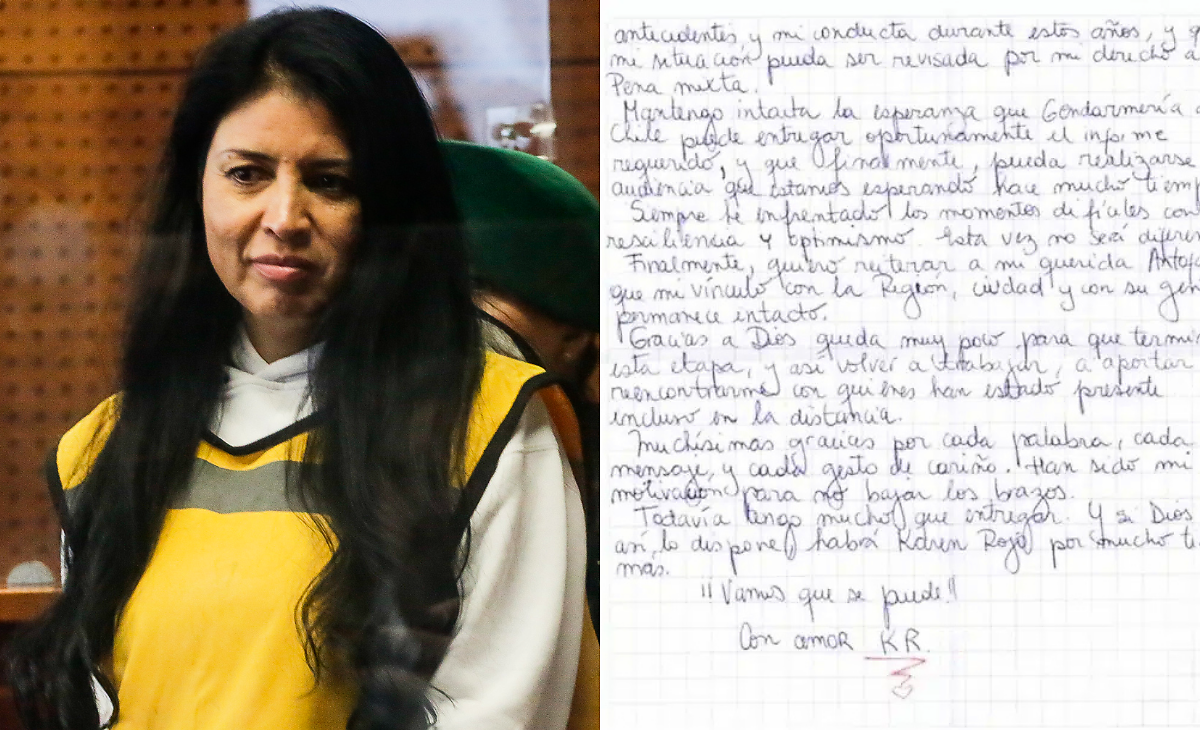 antecedentes, y mi conducta durante estos años, y q
mi situación pueda ser revisada por mi derecho a
Pena mixta.
Mantengo intacta la esperanza que Gendarmería
Chile puede entregar oportunamente el informe
requerido, y que finalmente, pueda realizarse
audiencia que estamos esperando hace mucho tiemp
Siempre he enfrentado los momentos difíciles con
resciliencia y optimismo. Esta vez no será diferen
Finalmente, quiero reiterar a mi querida Antofa
que mi vínculo con la Región, ciudad y con su gen
permanece intacto.
Gracias a Dios queda muy poco para que termi
esta etapa, y así volver a trabajar, a aportar
reencontrarme con quienes han estado presente
incluso en la distancia.
Muchísimas gracias por cada palabra, cada
mensaje, y cada gesto de cariño. Han sido mi
motivación para no bajar los brazos.
Todavía tengo mucho que entregar. Y si Dios
así, lo dispone, habrá Karen Rojo por mucho ti
más.
!!Vamos que se puede!!
Con amor KR.